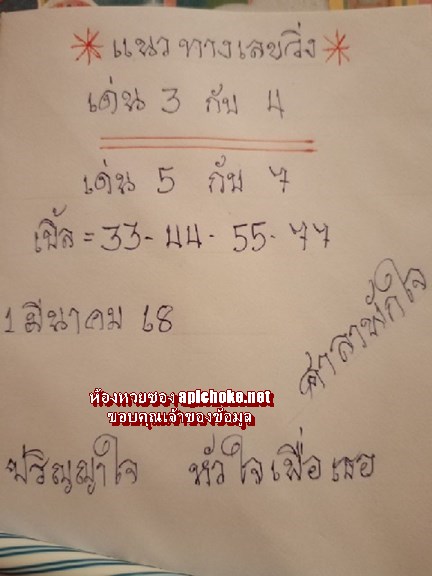 * แนวทางเลขวิ่ง *
เด่น 3 กับ 4
เด่น 5 กับ 7
เบิ้ล = 33 - 44 - 55 - 77
1 มีนาคม 68
ศาลาพักใจ
ห้องหวยซอง apichoke.net
ขอบคุณเจ้าของข้อมูล
ปริญญาใจ หัวใจเพื่อเธอ